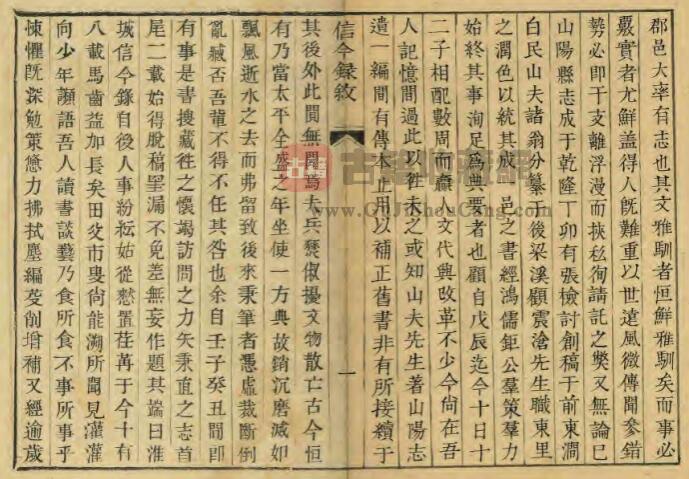 郡邑大率有志也其文雅馴者恒鮮雅馴矣而事必
覈實者尤鮮蓋得人旣難重以世遠風微傳聞參錯
勢必卽于支離浮漫而挾私徇請託之獘又無論已
山陽縣志成于乾隆丁卯有張檢討創稿于前東澗
白民山夫諸翁分纂于後梁溪顧震滄先生職東里
之潤色以統其成一邑之書經鴻儒鉅公羣策羣力
始終其事洵足爲典要者也顧自戊辰迄今十日十
二子相配數周而贏人文代興改革不少今尙在吾
人記憶間過此以往未之或知山夫先生著山陽志
遺一編間有傳本止用以補正舊書非有所接續于
信今錄敘
一
其後外此闃無聞焉夫兵燹俶擾文物散亡古今恒
有乃當太平全盛之年坐使一方典故銷沉磨滅如
飄風逝水之去而弗留致後來秉筆者憑虛裁斷倒
亂臧否吾輩不得不任其咎也余自壬子癸丑間卽
有事是書搜藏徃之懷竭訪問之力矢秉直之志首
尾二載始得脫稿罣漏不免差無妄作題其端曰淮
城信今錄自後人事紛紜姑從憖置荏苒于今十有
八載馬齒益加長矣田父市叟尙能溯所聞見灌灌
向少年頮語吾人讀書談藝乃食所食不事所事乎
悚懼旣深勉策憊力拂拭塵編芟削增補又經逾歲
古籍收藏網
www.GuJiShouCang.com